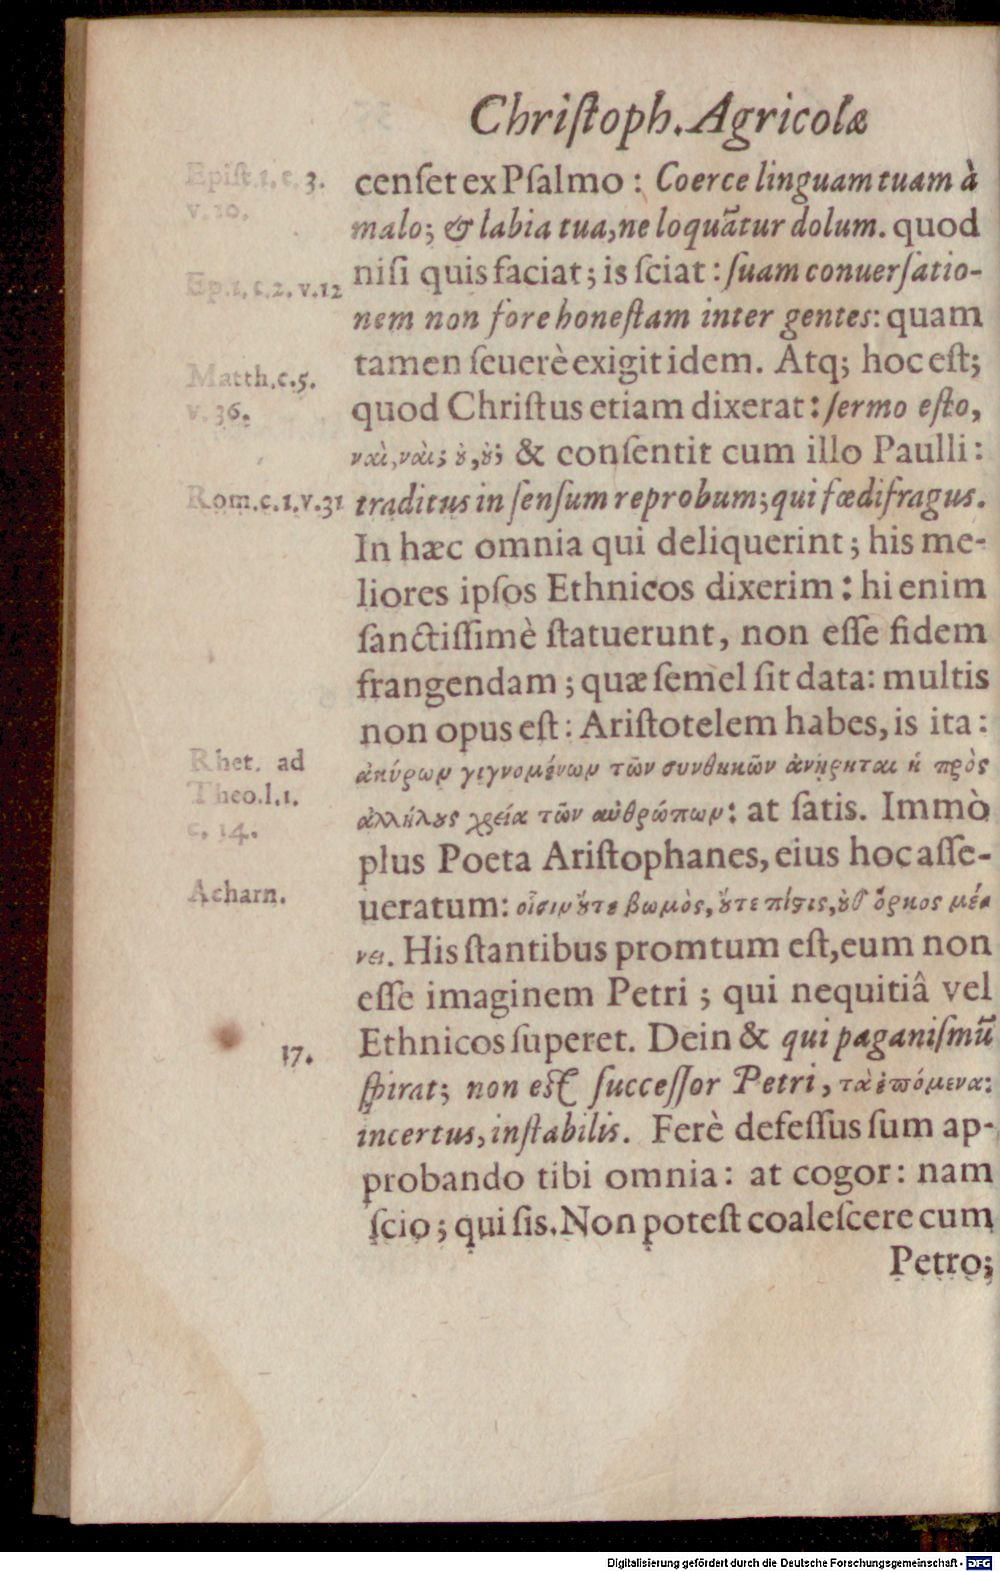 Chriſtoph. Agricolæ
Epiſt. 1. c. 3.
v. 10.
cenſet ex Pſalmo : Coerce linguam tuam à
malo; & labia tua, ne loquãtur dolum. quod
Ep. 1. c. 2. v. 12
niſi quis faciat; is ſciat : ſuam conuerſatio-
nem non fore honeſtam inter gentes: quam
Matth. c. 5.
v. 36.
tamen ſeuerè exigit idem. Atq; hoc eſt;
quod Chriſtus etiam dixerat: ſermo eſto,
ναὶ, ναὶ; ȣ̓, ȣ̓; & conſentit cum illo Paulli:
Rom. c. 1. v. 31
traditus in ſenſum reprobum; qui fœdifragus.
In hæc omnia qui deliquerint; his me-
liores ipſos Ethnicos dixerim: hi enim
ſanctiſſimè ſtatuerunt, non eſſe fidem
frangendam; quæ ſemel ſit data: multis
non opus eſt: Ariſtotelem habes, is ita:
Rhet. ad
Theo. l. 1.
c. 14.
ἀκύρων γιγνομένων τῶν συνθηκῶν ἀνῄρηται ἡ πρὸς
ἀλλήλȣς χρεία τῶν ανθρώπων: at ſatis. Immò
plus Poeta Ariſtophanes, eius hoc aſſe-
Acharn.
ueratum: οἷσιν ȣ̓́τε βωμὸς, ȣ̓́τε πίϛις, ȣ̓θ' ὅρκος μέ-
νει. His ſtantibus promtum eſt, eum non
eſſe imaginem Petri ; qui nequitiâ vel
17.
Ethnicos ſuperet. Dein & qui paganiſmũ
ſpirat; non eſt ſucceſſor Petri, τὰ ἑπόμενα:
incertus, inſtabilis. Ferè defeſſus ſum ap-
probando tibi omnia: at cogor: nam
ſcio; qui ſis. Non poteſt coaleſcere cum
Petro;
Digitalisierung gefördert durch die Deutsche Forschungsgemeinschaft - DFG